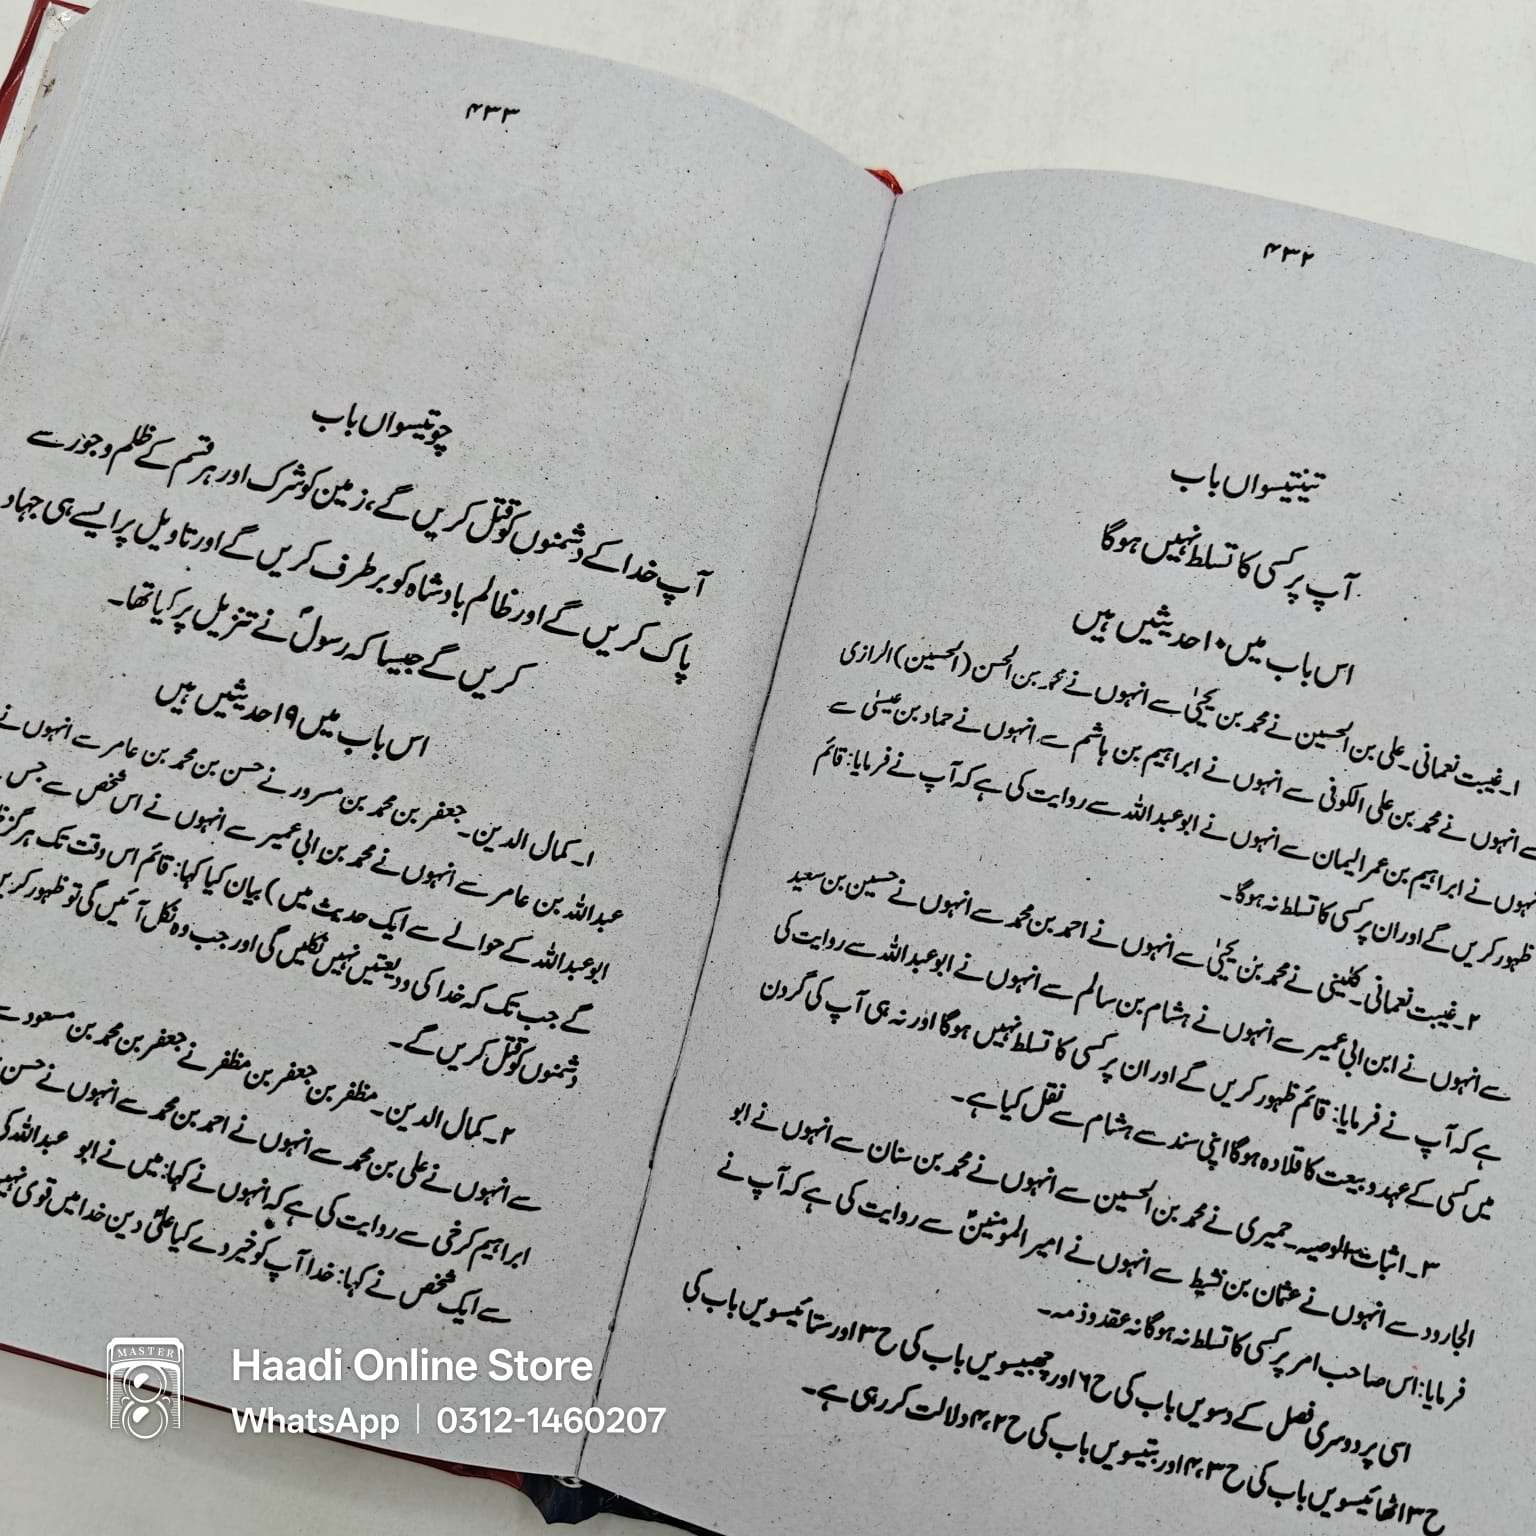 ۴۳۲
تینتیسواں باب
آپ پر کسی کا تسلط نہیں ہوگا
اس باب میں ۱۰ حدیثیں ہیں
۱۔ غیبت نعمانی۔ علی بن الحسین نے محمد بن یحییٰ سے انہوں نے محمد بن الحسن (الحسین) الرازی
سے انہوں نے محمد بن علی الکوفی سے انہوں نے ابراہیم بن ہاشم سے انہوں نے حماد بن عیسیٰ سے
انہوں نے ابراہیم بن عمر الیمان سے انہوں نے ابو عبداللہ سے روایت کی ہے کہ آپ نے فرمایا: قائم
ظہور کریں گے اور ان پر کسی کا تسلط نہ ہوگا۔
۲۔ غیبت نعمانی۔ کلینی نے محمد بن یحییٰ سے انہوں نے احمد بن محمد سے انہوں نے حسین بن سعید
سے انہوں نے ابن ابی عمیر سے انہوں نے ہشام بن سالم سے انہوں نے ابو عبداللہ سے روایت کی
ہے کہ آپ نے فرمایا: قائم ظہور کریں گے اور ان پر کسی کا تسلط نہیں ہوگا اور نہ ہی آپ کی گردن
میں کسی کے عہد و بیعت کا قلادہ ہوگا اپنی سند سے ہشام سے نقل کیا ہے۔
۳۔ اثبات الوصیہ۔ حمیری نے محمد بن الحسین سے انہوں نے محمد بن سنان سے انہوں نے ابو
الجارود سے انہوں نے عثمان بن نشیط سے انہوں نے امیر المومنینؑ سے روایت کی ہے کہ آپ نے
فرمایا: اس صاحب امر پر کسی کا تسلط نہ ہوگا نہ عقد و ذمہ۔
اسی پر دوسری فصل کے دسویں باب کی ح ۶ اور چھبیسویں باب کی ح ۳ اور ستائیسویں باب کی
ح ۳ اٹھائیسویں باب کی ح ۳، ۴ اور بتیسویں باب کی ح ۲، ۴ دلالت کر رہی ہے۔
۴۳۳
چوتیسواں باب
آپ خدا کے دشمنوں کو قتل کریں گے، زمین کو شرک اور ہر قسم کے ظلم و جور سے
پاک کریں گے اور ظالم بادشاہ کو برطرف کریں گے اور تاویل پر ایسے ہی جہاد
کریں گے جیسا کہ رسولؐ نے تنزیل پر کیا تھا۔
اس باب میں ۱۹ حدیثیں ہیں
۱۔ کمال الدین۔ جعفر بن محمد بن مسرور نے حسن بن محمد بن عامر سے انہوں نے
عبداللہ بن عامر سے انہوں نے محمد بن ابی عمیر سے انہوں نے اس شخص سے جس
ابو عبداللہ کے حوالے سے ایک حدیث میں) بیان کیا کہا: قائم اس وقت تک ہرگز
گے جب تک کہ خدا کی ودیعتیں نہیں نکلیں گی اور جب وہ نکل آئیں گی تو ظہور کریں
دشمنوں کو قتل کریں گے۔
۲۔ کمال الدین۔ مظفر بن جعفر بن مظفر نے جعفر بن محمد بن مسعود سے
سے انہوں نے علی بن محمد سے انہوں نے احمد بن محمد سے انہوں نے حسن
ابراہیم کرخی سے روایت کی ہے کہ انہوں نے کہا: میں نے ابو عبداللہ کی
سے ایک شخص نے کہا: خدا آپ کو خیر دے کیا علیؑ دین خدا میں قوی نہیں
MASTER
Haadi Online Store
WhatsApp | 0312-1460207